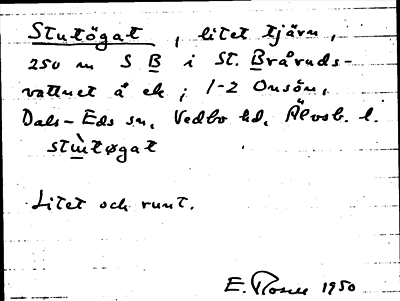 Stutögat, litet tjärn,
250 m S B i St. Bråruds-
vattnet å ek; 1-2 Onsön,
Dals-Eds sn, Vedbo hd, Älvsb. l.
stùtøgat
Litet och runt.
E. Rosell 1950